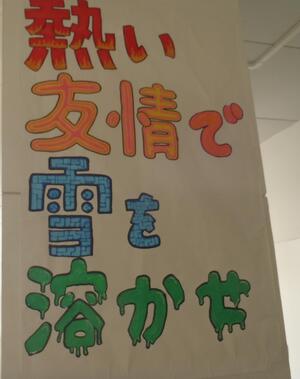 熱い
友情で
雪を
溶かせ